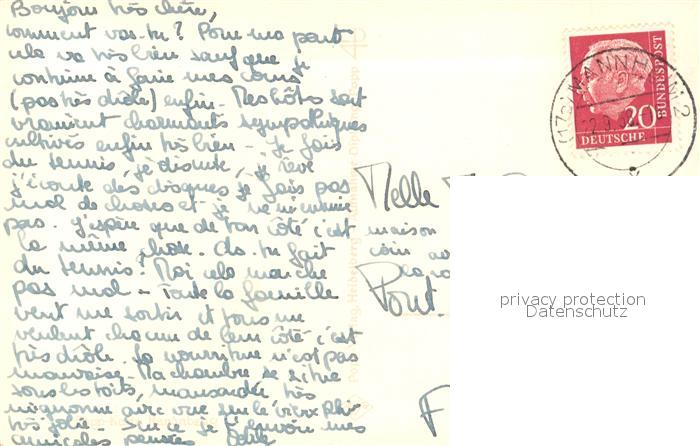 Bonjour très chère,
comment vas-tu? Pour ma part
cela va très bien sauf que je
continue à faire mes cours
(pas très drôle) enfin. Mes hôtes sont
vraiment charmants sympathiques
cultivés enfin très bien - Je fais
du tennis, je discute, je rêve
j'écoute des disques je fais pas
mal de choses et je ne m'ennuie
pas. J'espère que de ton côté c'est
la même chose. As-tu fait
du tennis? Moi cela marche
pas mal - Toute la famille
veut me sortir et tous me
veulent chacun de leur côté c'est
très drôle. La nourriture n'est pas
mauvaise. Ma chambre se situe
sous les toits, mansardée très
mignonne avec vue sur le vieux
très jolie. Sur ce je t'envoie mes
amicales pensées
Melle
maison
coin
Pont.
F
MANNHEIM 2
20
DEUTSCHE
BUNDESPOST
privacy protection
Datenschutz